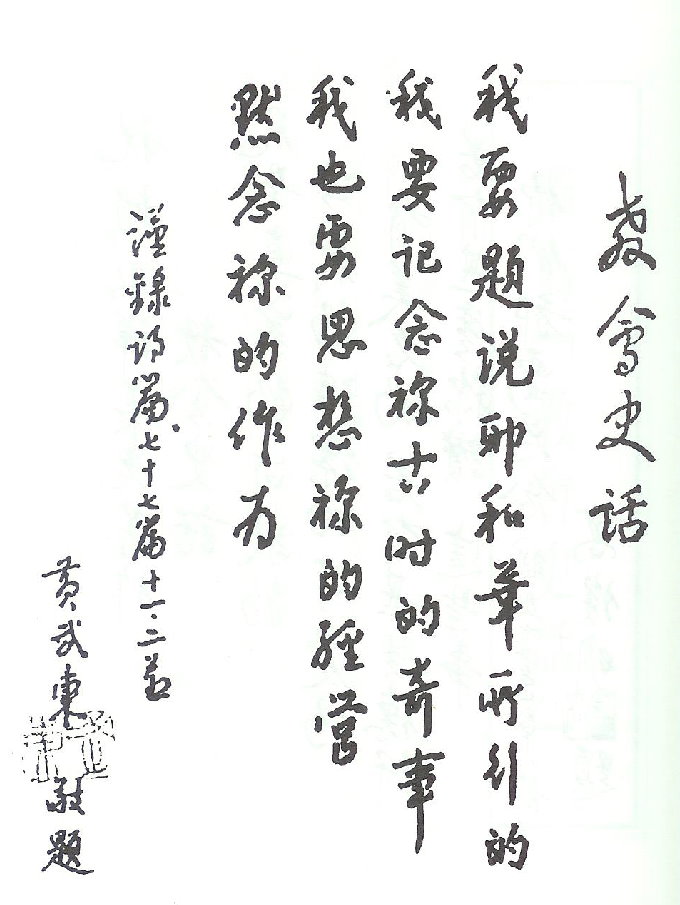 教會史話
我要題說耶和華所行的
我要記念祢古時的奇事
我也要思想祢的經營
默念祢的作為
謹錄詩篇七十七篇十一、二節
黃武東 敬題